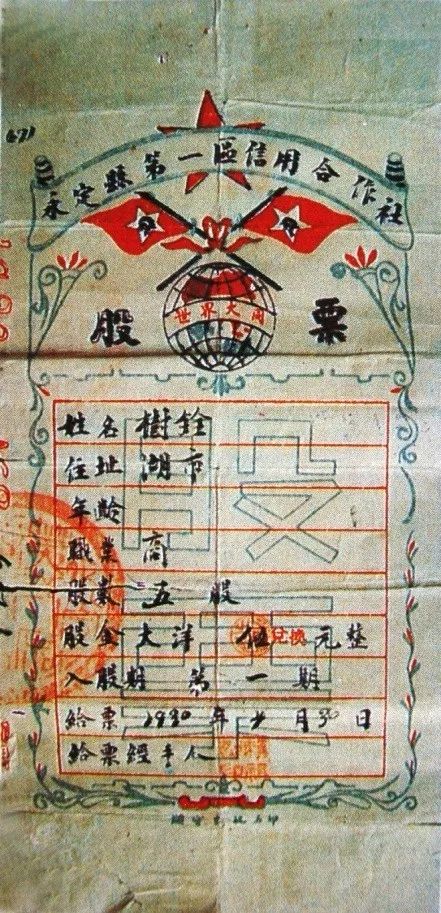 691
永定縣第一區信用合作社
股票
世界大同
姓名 樹銓
住址 湖市
年齡
職業 商
股數 五 股
股金 大洋 伍 兌換 元整
入股期 第一期
給票1930年 月30日
給票經手人